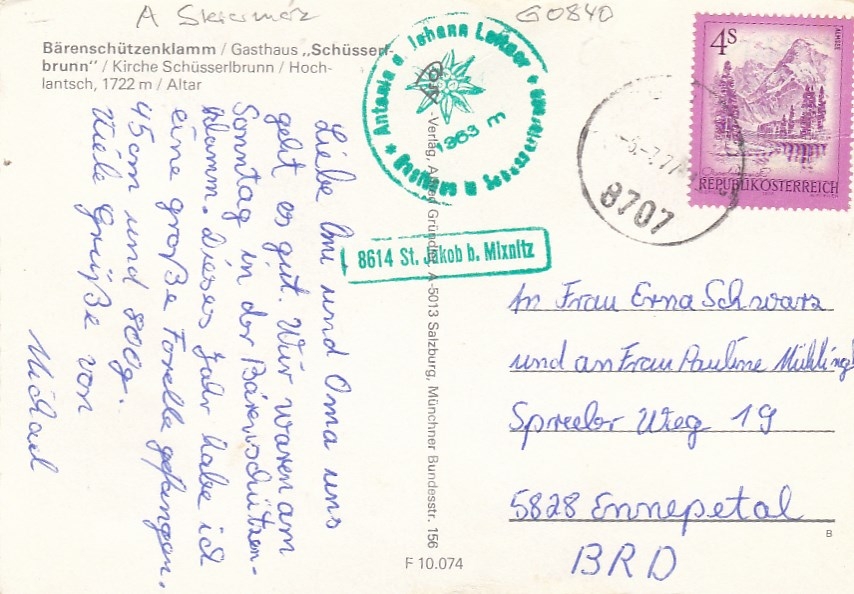 A Steiermark
G0840
Bärenschützenklamm / Gasthaus „Schüsserl-
brunn" / Kirche Schüsserlbrunn / Hoch-
lantsch, 1722 m / Altar
Antonia u. Johann
Gasthaus
1363 m
8614 St. Jakob b. Mixnitz
-Verlag, Gründler, A-5013 Salzburg, Münchner Bundesstr. 156
F 10.074
4S
ALMSEE
REPUBLIK ÖSTERREICH
8707
Liebe Omi und Oma uns
geht es gut. Wir waren am
Sonntag in der Bärenschützen-
klamm. Dieses Jahr habe ich
eine große Forelle gefangen.
45cm und 800g.
Viele Grüße von
Michael
An Frau Erna Schwarz
und an Frau Pauline
Spreeler Weg 19
5828 Ennepetal
BRD
B